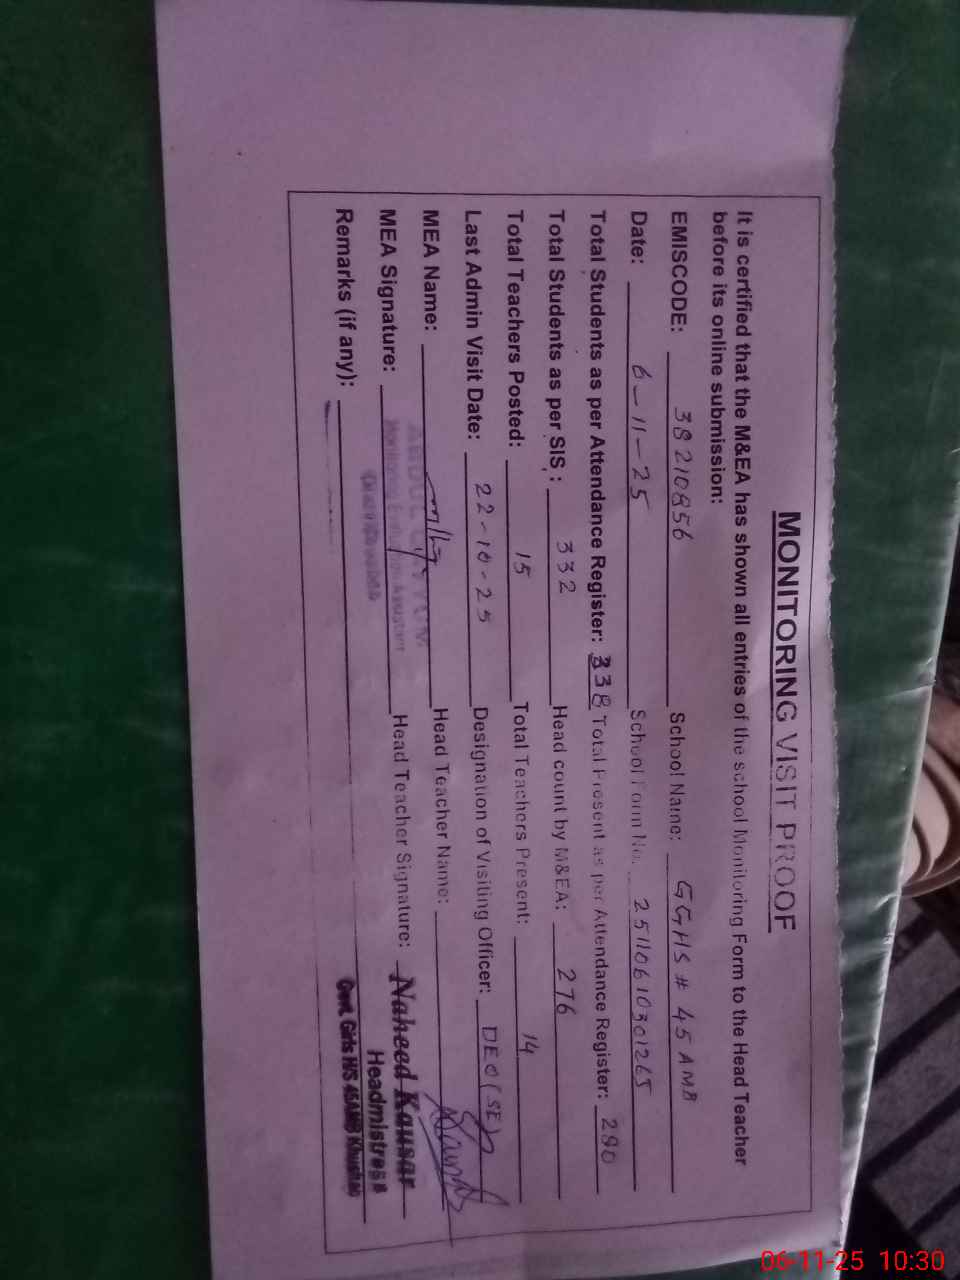 MONITORING VISIT PROOF
It is certified that the M&EA has shown all entries of the school Monitoring Form to the Head Teacher
before its online submission:
EMISCODE: 38210856 School Name: GGHS # 45 AMB
Date: 6-11-25 School Form No. 25110610301265
Total Students as per Attendance Register: 338 Total Present as per Attendance Register: 290
Total Students as per SIS: 332 Head count by M&EA: 276
Total Teachers Posted: 15 Total Teachers Present: 14
Last Admin Visit Date: 22-10-25 Designation of Visiting Officer: DEO(SE)
MEA Name: Head Teacher Name:
ABDUL QAYYUM
MEA Signature: Head Teacher Signature: Naheed Kausar
Monitoring Evaluation Assistant
Headmistress
Remarks (if any):
Govt. Girls H/S 45AMB Khushab
06-11-25 10:30